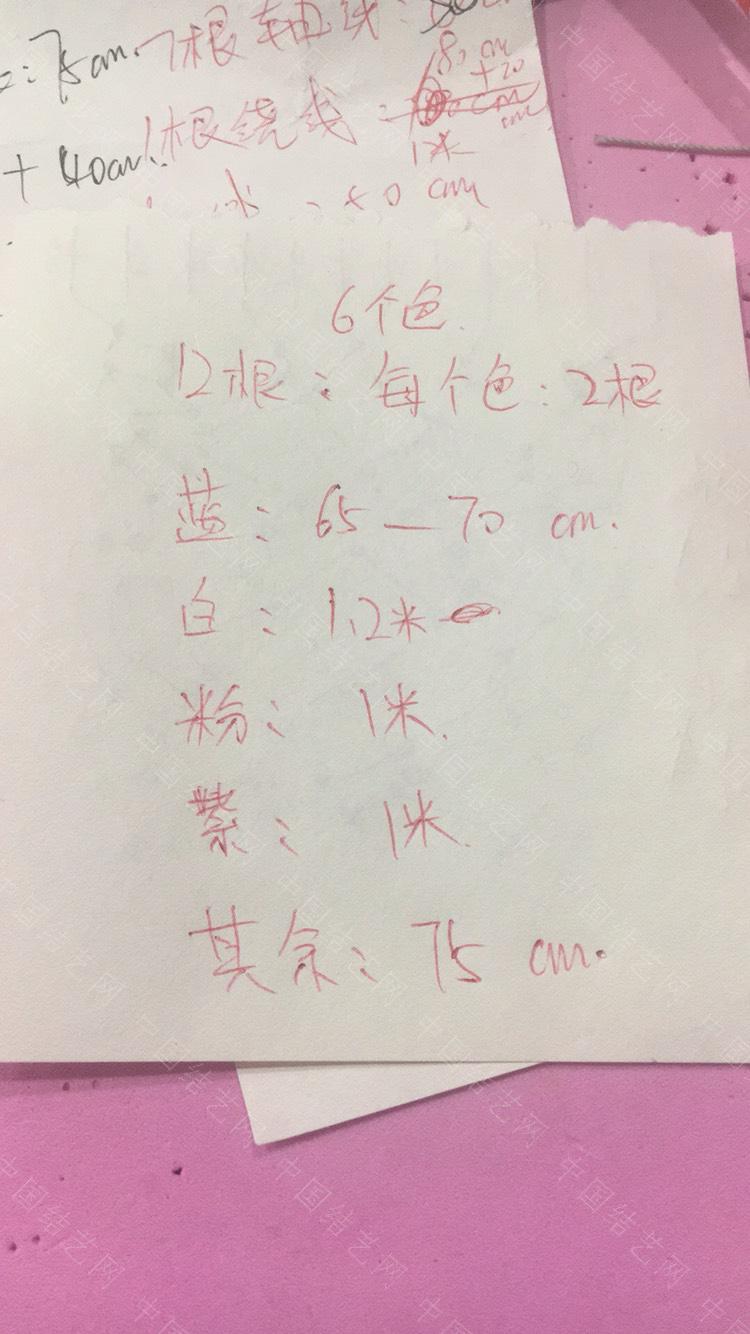 7根轴线:80
2:75cm.
80cm
+20
cm
1根绕线:
1米
+40cm.
cm
6个色.
12根:每个色:2根
蓝:65—70 cm.
白:1.2米
粉: 1米.
紫: 1米.
其余:75 cm.
中国结艺网